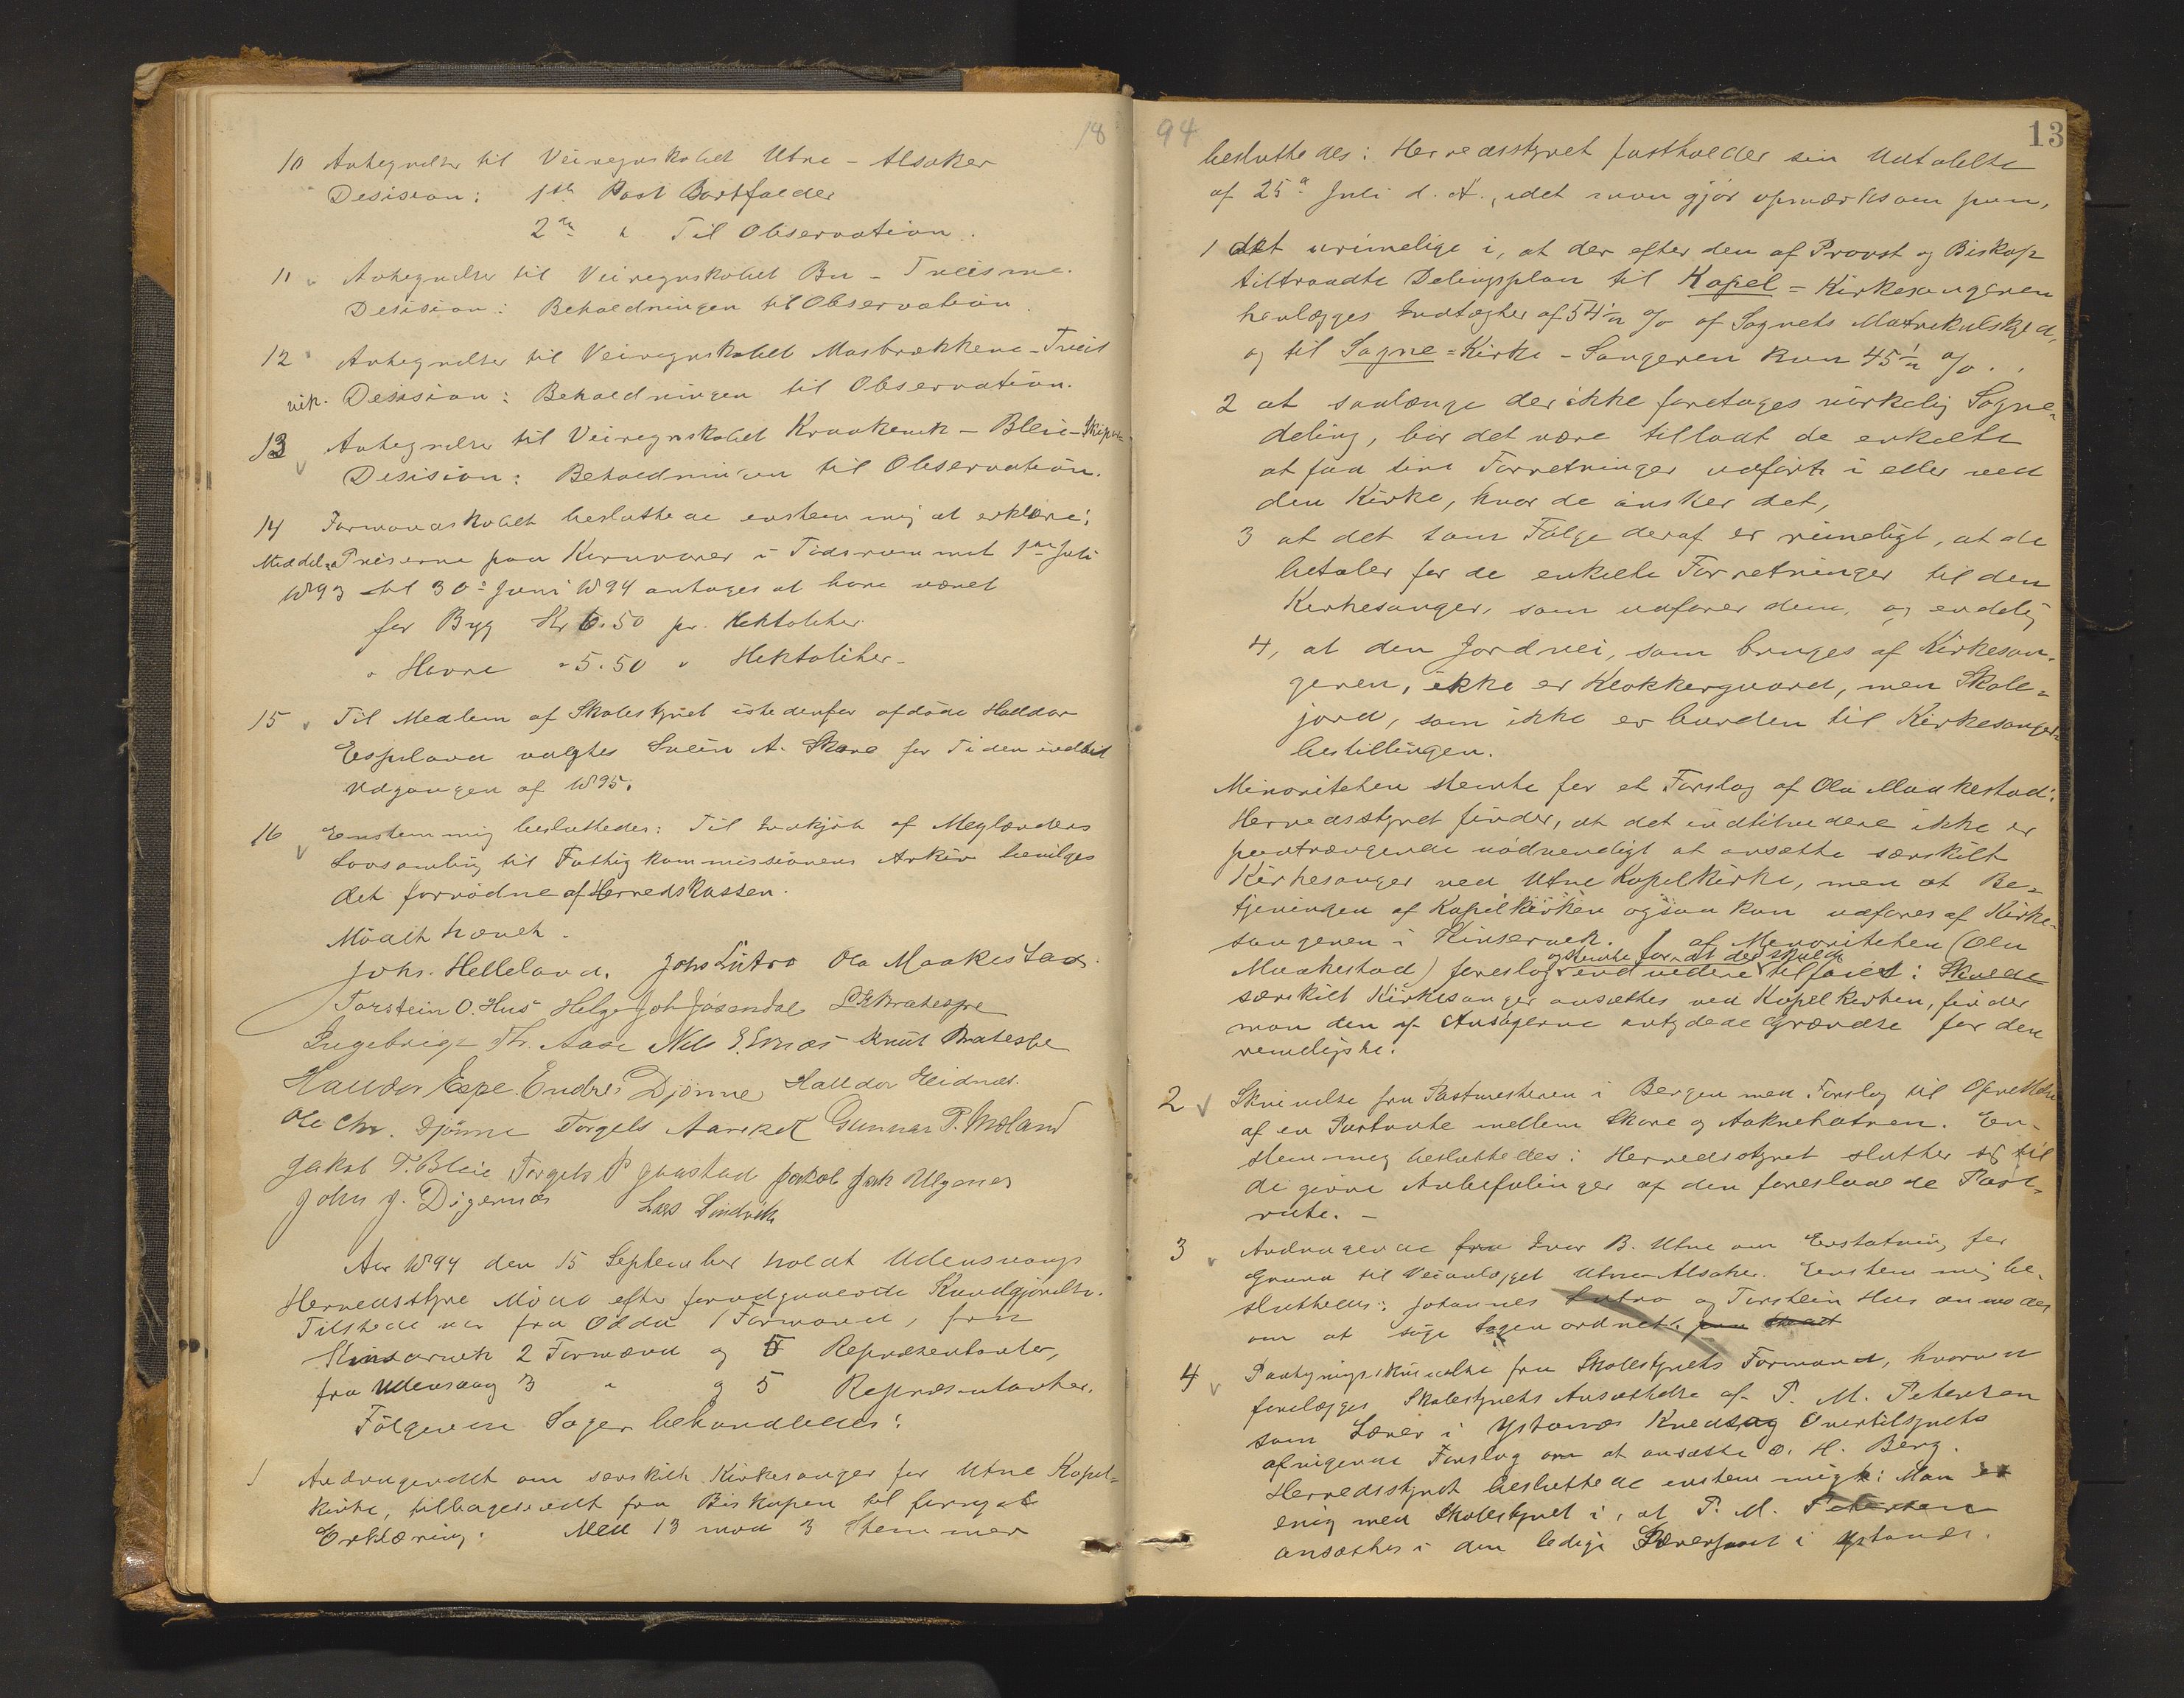 18
10 Antegnelser til Veiregnskabet Utne - Alsaker
Desision: 1ste Post Bortfalder
2den " Til Observation.
11 Antegnelser til Veiregnskabet Bu - Tveisme.
Desision: Beholdningen til Observation.
12 Antegnelser til Veiregnskabet Mosbrækkene - Tveit
Desision: Beholdningen til Observation.
13 Antegnelser til Veiregnskabet Kraakevik - Bleie -
Desision: Beholdningen til Observation.
14 Formandskabet besluttede enstemmig at erklære:
Meddelt Priserne paa Kornvarer i Tidsrummet 1ste Juli
1893 til 30te Juni 1894 antages at have været
for Byg Kr 6.50 pr. Hektoliter
" Havre " 5.50 " Hektoliter -
15 Til Medlem af Skolestyret istedenfor afdøde Haldor
Espeland valgtes Svein A. Skare for Tiden indtil
Udgangen af 1895.
16 Enstemmig besluttedes: Til Indkjøb af Meglænders
Lovsamling til Fattigkommissionens Arkiv bevilges
det fornødne af Herredskassen.
Mødet hævet.
Johs. Helleland. Johs Lutro Ola Maakestad.
Torstein O. Hus Helge Joh Jøsendal
Ingebrigt Th. Aase Nels E. Ernæs Knut Bratespe
Halldor Espe. Endre Djønne Halldor Eidnæs.
Ole Chr. Djønne Torgels Aarekol Gunnar P. Mæland
Jakob T. Bleie Torgels P Jaastad Jakob Jak Ulgenes
John J. Digernæs Lars Lindvik
Aar 1894 den 15 September holdt Udensvangs
Herredsstyre Møde efter forudgaaende Kundgjørelse.
Tilstede var fra Odda 1 Formand, fra
Kinservik 2 Formænd og 5 Repræsentanter,
fra Udensvang 3 " og 5 Repræsentanter.
Følgende Sager behandledes:
1 Andragendet om særskilt Kirkesanger for Utne Kapel-
kirke, tilbagesendt fra Biskopen til fornyet
Erklæring: Med 13 mod 3 Stemmer
94
13
besluttedes: Herredsstyret fastholder sin Udtalelse
af 25de Juli d. A., idet man gjør opmærksom paa,
1 det urimelige i, at der efter den af Provst og Biskop
tiltraadte Delingsplan til Kapel = Kirkesangeren
henlægges Indtægter af 54½ % af Sognets Matrikulskyld,
og til Sogne = Kirke - Sangeren kun 45½ %.,
2 at saalænge der ikke foretages virkelig Sogne-
deling, bør det være tilladt de enkelte
at faa sine Forretninger udført i eller ved
den Kirke, hvor de ønsker det,
3 at det som Følge deraf er rimeligt, at de
betaler for de enkelte Forretninger til den
Kirkesanger, som udfører dem, og endelig
4, at den Jordvei, som bruges af Kirkesan-
geren, ikke er Klokkergaard, men Skole-
jord, som ikke er bunden til Kirkesanger-
bestillingen.
Minoriteten stemte for et Forslag af Ola Maakestad:
Herredsstyret finder, at det indtil videre ikke er
paatrængende nødvendigt at ansætte særskilt
Kirkesanger ved Utne Kapelkirke, men at Be-
tjeningen af Kapelkirken ogsaa kan udføres af Kirke-
sangeren i Kinservik. 1 af Minoriteten (Ola
og stemte for at der skulde
Maakestad) foreslog end videre tilføiet: Skulde
særskilt Kirkesanger ansættes ved Kapelkirken, finder
man den af Ansøgerne antydede Grændse for den
rimeligste.
2 Skrivelse fra Postmesteren i Bergen med Forslag til Oprettelse
af en Postrute mellem Skare og Aakrehavn. En-
stemmig besluttedes: Herredsstyret slutter sig til
de givne Anbefalinger af den foreslaaede Post-
rute. -
3 Andragende fra Ivar B. Utne om Erstatning for
Grund til Veianlægget Utne-Alsaker. Enstemmig be-
sluttedes: Johannes Lutro og Torstein Hus anmodes
om at søge Sagen ordnet.
4 Paategningsskrivelse fra Skolestyrets Formand, hvorved
forelægges Skolestyrets Ansættelse af P. M. Petersen
som Lærer i Ystanæs Kreds og Overtilsynets
afvigende Forslag om at ansætte O. H. Berg.
Herredsstyret besluttede enstemmigt: Man er
enig med Skolestyret i, at P. M. Petersen
ansættes i den ledige Lærerpost i Ystanæs.